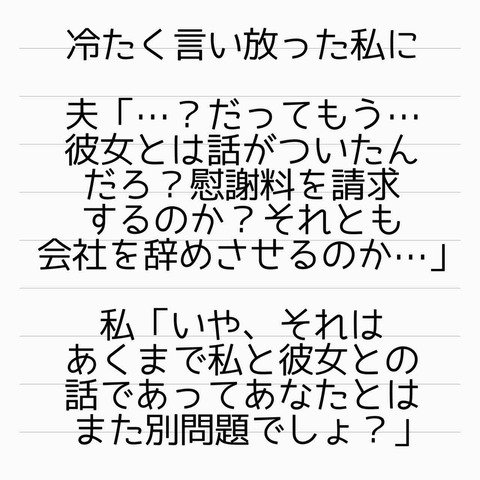 冷たく言い放った私に
夫「…？だってもう…
彼女とは話がついたん
だろ？慰謝料を請求
するのか？それとも
会社を辞めさせるのか…」
私「いや、それは
あくまで私と彼女との
話であってあなたとは
また別問題でしょ？」